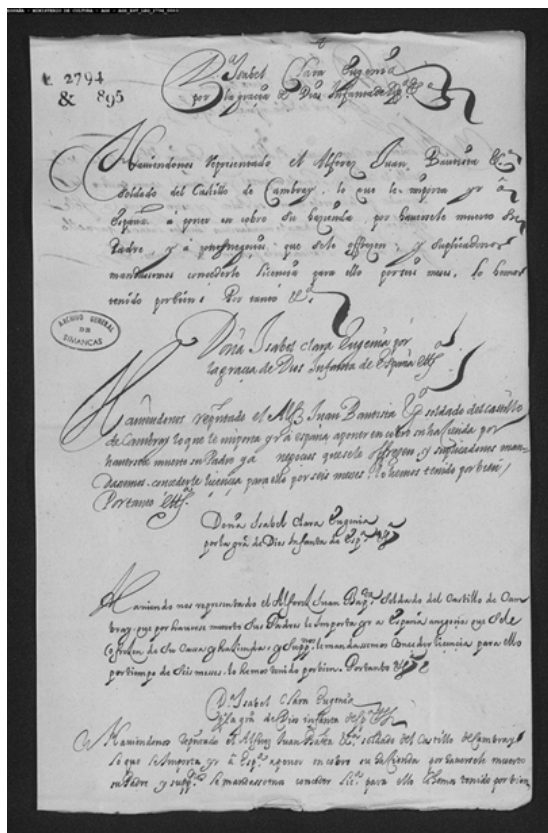 ESPAÑA - MINISTERIO DE CULTURA - AGS
2794
& 895
Dª Isabel Clara Eugenia
por la gracia de Dios Infanta de Espª &ª
Haviendonos representado el Alferez Juan Bautista
soldado del Castillo de Cambray, lo que le importa yr á
España á poner en cobro su hazienda, por haversele muerto su
Padre, y á negocios que sele offreçen, y suplicadonos
mandassemos concederle licencia para ello por seis meses, lo hemos
tenido por bien; Por tanto &ª
ARCHIVO GENERAL
DE
SIMANCAS
Doña Isabel Clara Eugenia por
la gracia de Dios Infanta de España
Haviendonos el Alfz Juan Bautista soldado del castillo
de Cambray lo que le importa yr a españa a poner en cobro su hazienda por
haversele muerto su Padre y a negocios que sele offreçen, y suplicadonos man-
dassemos concederle licençia para ello por seis meses, lo hemos tenido por bien,
Por tanto
Doña Isabel Clara Eugenia
por la grã de Dios Infanta de Espª
Haviendo nos representado el Alferez Juan Bapta Soldado del Castillo de Cam
bray, que por haverse muerto sus Padres le Importa yr a España a negoçios que Sele
ofrezen de Su Casa y hazienda, y suppnos le mandassemos Conceder liçençia para ello
por tiempo de Seis meses, lo hemos tenido por bien. Por tanto
Dª Isabel Clara Eugenia
por la grã de Dios infanta de Espª
Haviendonos el Alferez Juan Bauta soldado del Castillo de Cambray
lo que le Importa yr á Espª a poner en cobro su hazienda por haversele muerto
su Padre y le mandassemos conceder licª para ello lo hemos tenido por bien